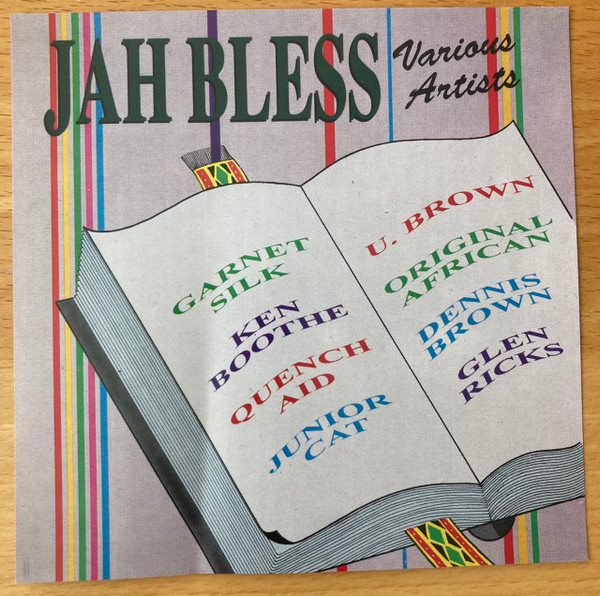 JAH BLESS
Various
Artists
GARNET
SILK
KEN
BOOTHE
QUENCH
AID
JUNIOR
CAT
U. BROWN
ORIGINAL
AFRICAN
DENNIS
BROWN
GLEN
RICKS